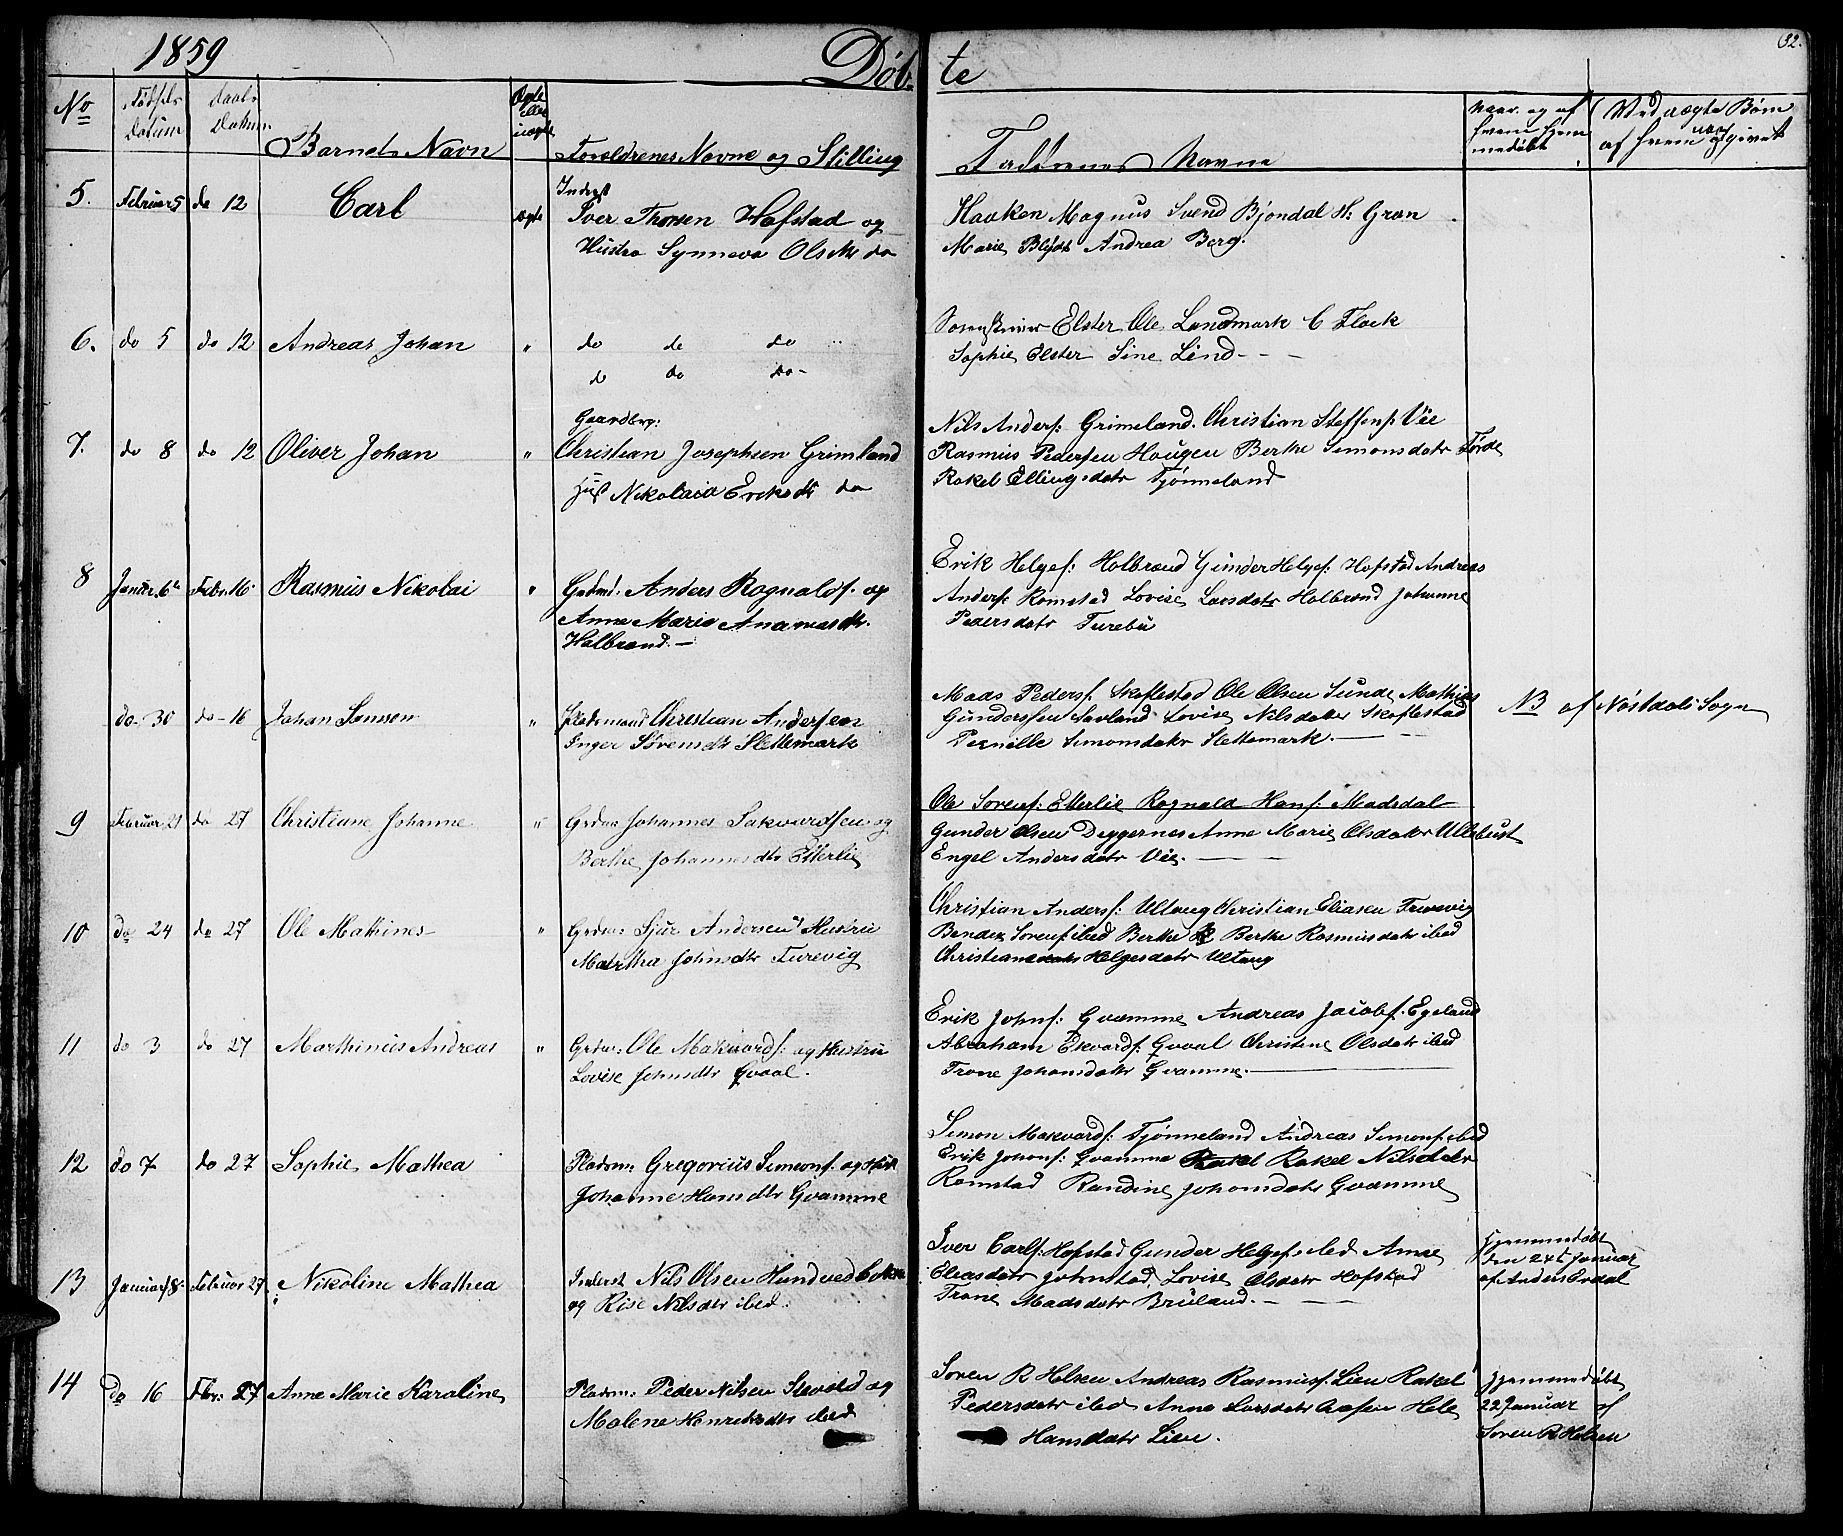 1859 Døbte 32.
No Fødsels Datum Daabs Datum Barnets Navn Ægte eller uægte Forældrenes Navne og Stilling Faddernes Navne Naar og af hvem hjemmedøbt Ved uægte Børn af hvem opgivet
5. Februar 5 do 12 Carl Ægte Inderst
Iver Thorsen Hafstad og
Hustro Synneva Olsdtr do
Haaken Magnus Svend Bjondal H: Grøn
Marie Blydt Andrea Berg.
6. do 5 do 12 Andreas Johan " do do do
do do do-
Elster Ole Landmark C Flock
Sophie Elster Sine Lind- - -
7. do 8 do 12 Oliver Johan " Gaardbrg:
Christian Josephsen Grimland
Hus Nikolaia Eriksdtr do
Nils Anders: Grimeland. Christian Steffens: Vie
Rasmus Pedersen Haugen Berthe Simonsdatr Førde
Rakel Ellingsdatr Tjønneland
8 Januar 6te Febr. 16. Rasmus Nikolai " Grdmd: Anders Ragnalds. og
Anne Marie Ananiasdtr.
Halbrend.-
Erik Helges: Halbrend Gunder Helges: Hafstad Andreas
Anders: Romstad Lovise Larsdatr Halbrend Johanne
Pedersdatr Turebü
do 30 do-16 Johan Samson " Pladsmand Christian Andersen
Inger Sørensdtr Slettemark
Mads Peders: Skoflestad Ole Olsen Sunde Mathias
Gundersen Savland Lovise Nilsdatter Skoflestad
Pernille Simonsdatr Slettemark.-
NB af Nøstdals Sogn
9 Februar 21 do 27 Christiane Johanne " Grdm Johannes Sakvardsen og
Berthe Johannesdtr Etterlie
Ole Sørens: Etterlie Ragnald Hans: Madsdal
Gunder Olsen Diggernes Anne Marie Olsdatr Ullebust
Engel Andersdatr Vie.-
10 do 24 do 27 Ole Mathines " Grdm: Sjur Andersen Hustru
Martha Johnsdtr Turevig
Christian Anders: Ultang Christian Eliasen Turevig
Bendix Sørens ibed Berthe Berthe Rasmusdatr ibed
Christiane Helgesdatr Ultang
11 do 3 do 27 Marthinius Andreas " Grdm: Ole Makvards: og Hustru
Lovise Johnsdtr Qvaal.
Erik Johns: Qvamme Andreas Jacobs. Egeland
Abraham Ekvards: Qvaal Christine Olsdatr ibed
Trone Johansdatr Qvamme.-
12 do 7 do 27 Sophie Mathea Pladsm: Gregorius Simons: og Hust
Johanne Hansdtr Qvamme
Simon Makvards: Tjønneland Andreas Simons: ibed
Erik Johans: Qvamme Rakel Nilsdatr
Romstad Randine Johansdatr Qvamme
13 Januar 18. Februar 27 Nikoline Mathea Inderst Nils Olsen Hundved
og Rise Nilsdtr ibed.
Iver Carls: Hofstad Gunder Helges: ibed Anne
Eliasdatr Johnstad Lovise Olsdatr Hofstad
Trone Madsdatr Bruland.-
Hjemmedøbt
den 24t Januar
af Anders Erdal
14 do 16 Fbr: 27 Anne Marie Karoline Pladsm: Peder Nilsen og
Malene Henriksdtr ibed
Søren R Helsen Andreas Rasmus: Lien Rakel
Pedersdatr ibed Anne Larsdatr Aasen Hele
Hansdatr Lien.
Hjemmedøbt
22 Januar af
Søren R Helsen